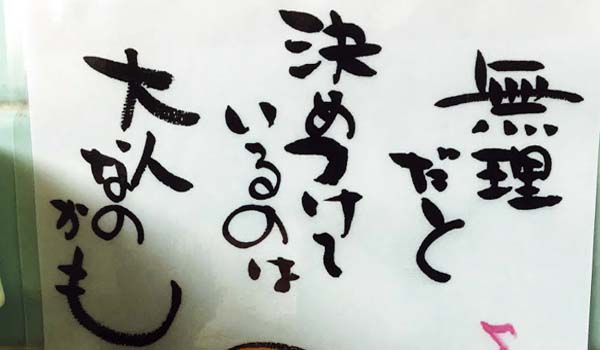 無理
だと
決めつけて
いるのは
大人なの
かも